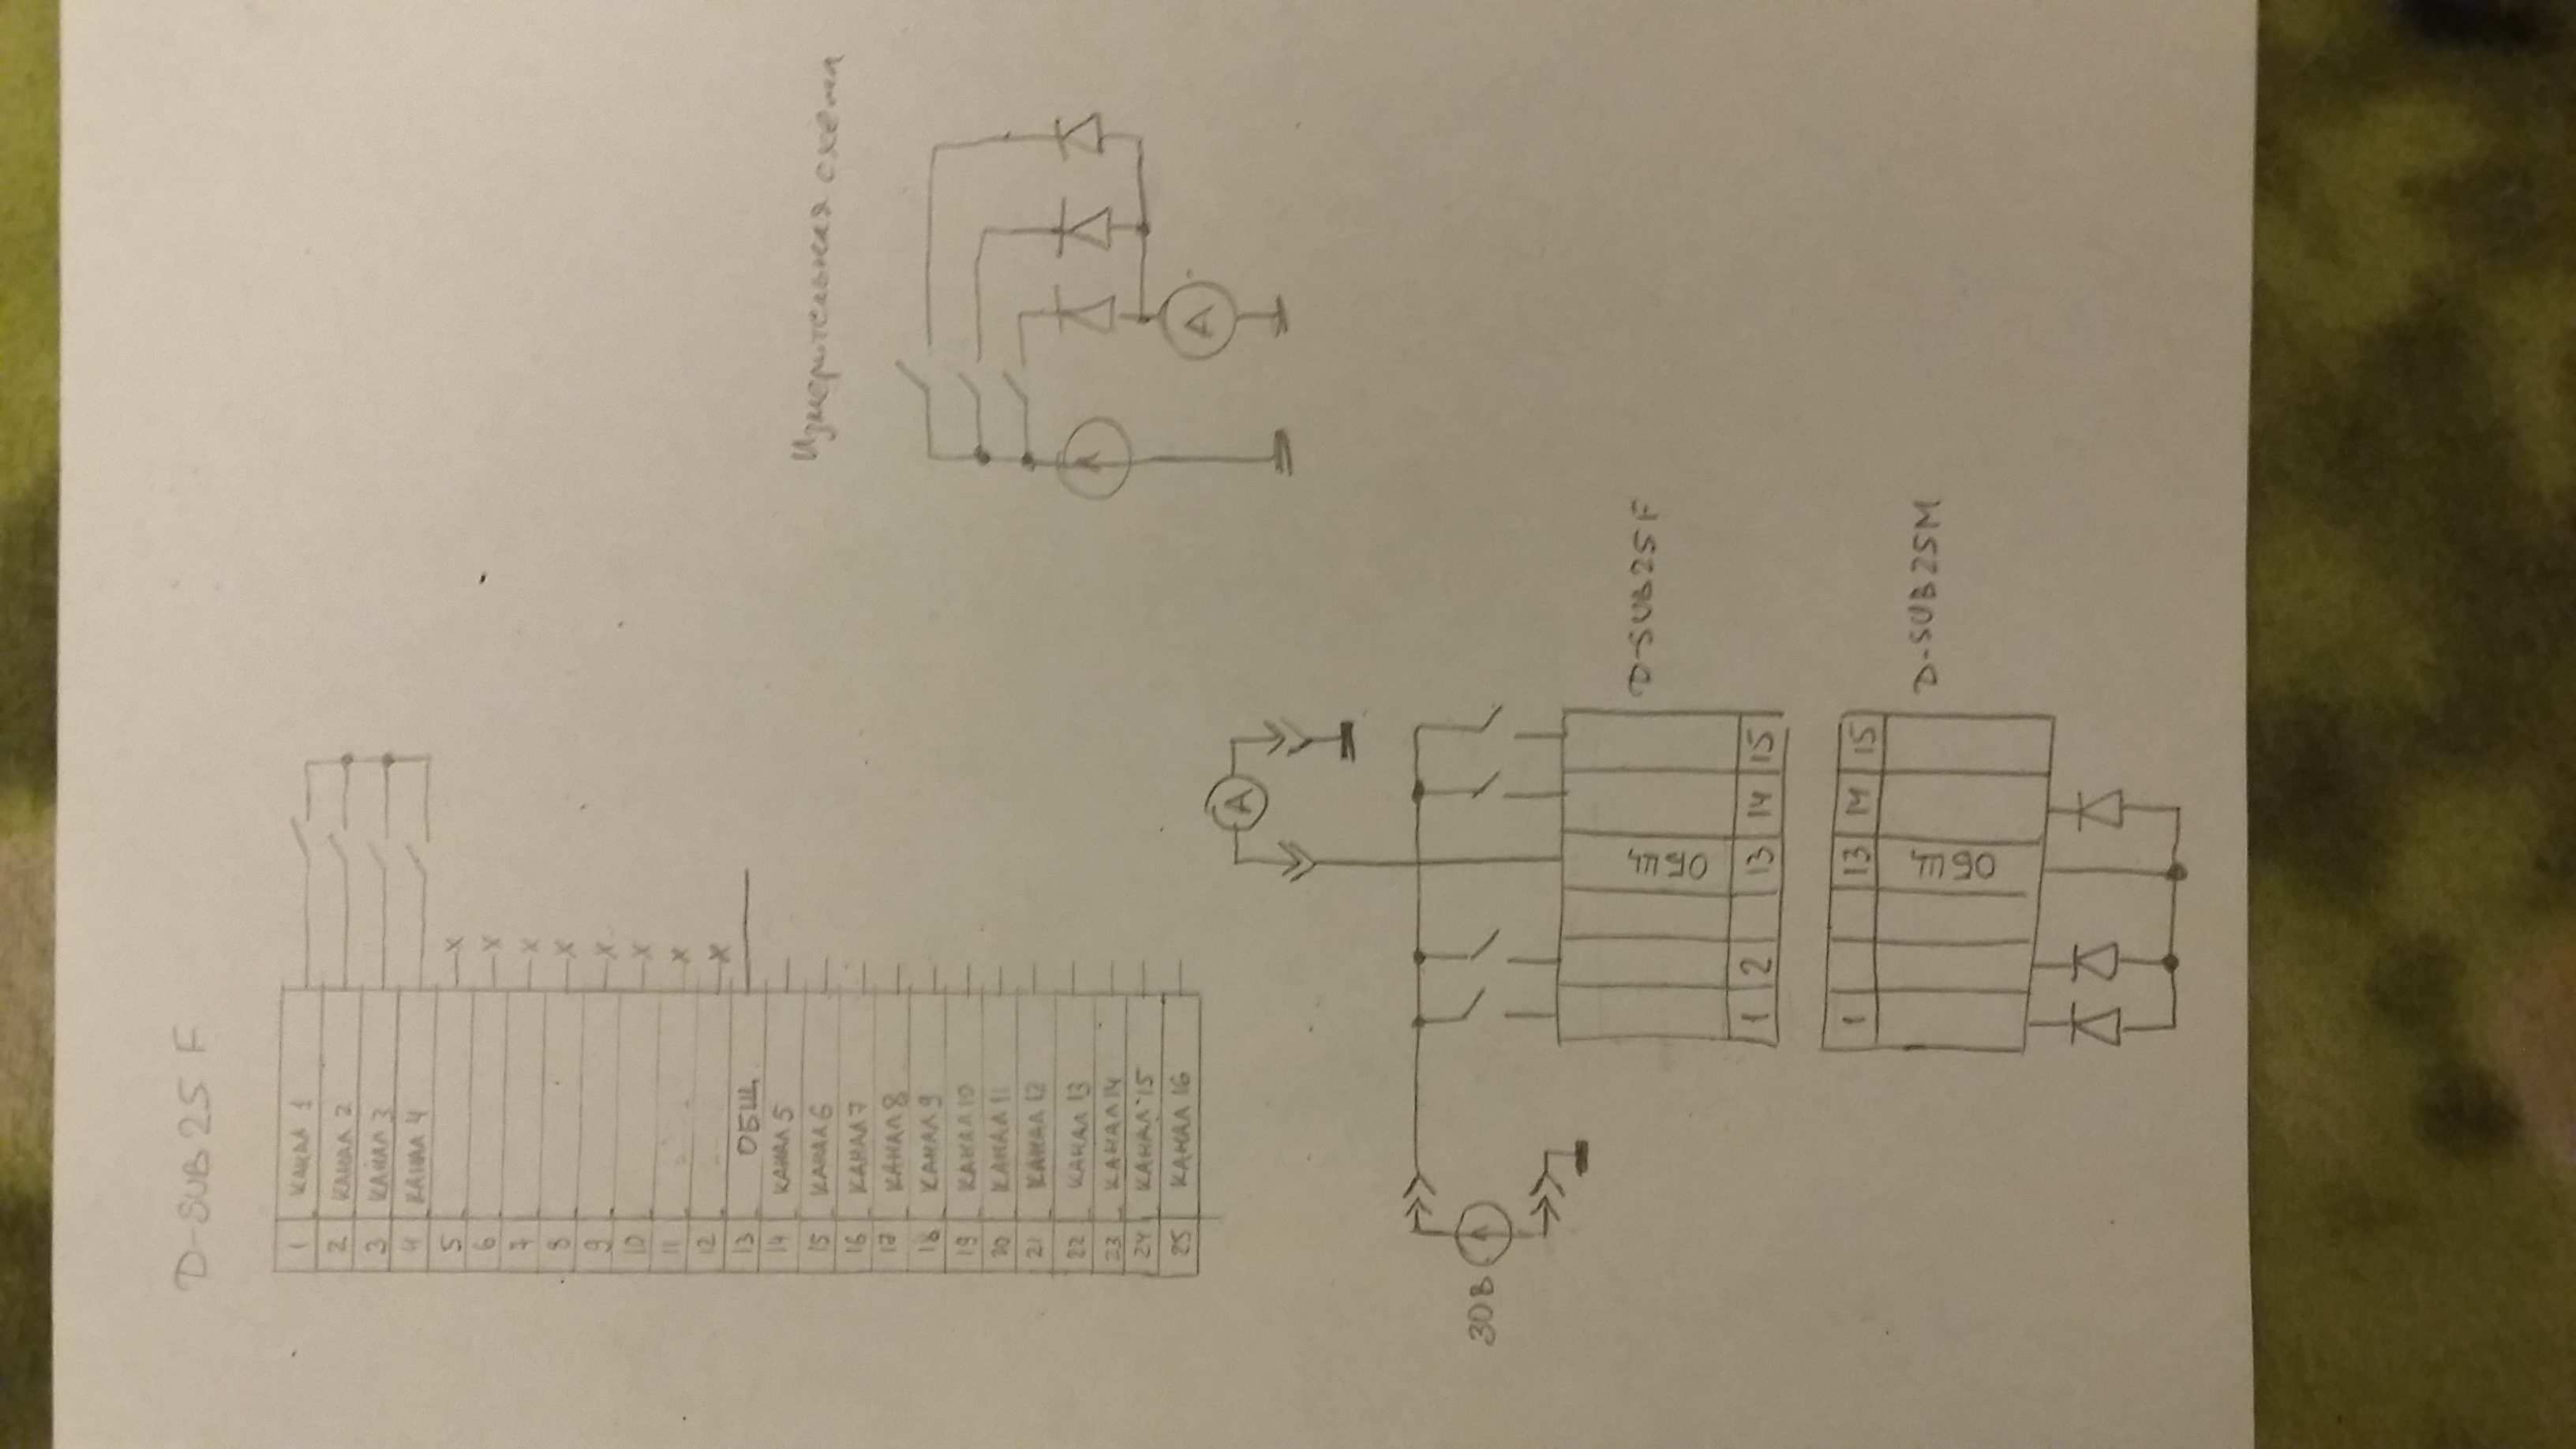 D-SUB 25 F
1 КАНАЛ 1
2 КАНАЛ 2
3 КАНАЛ 3
4 КАНАЛ 4
5
6
7
8
9
10
11
12
13 ОБЩ.
14 КАНАЛ 5
15 КАНАЛ 6
16 КАНАЛ 7
17 КАНАЛ 8
18 КАНАЛ 9
19 КАНАЛ 10
20 КАНАЛ 11
21 КАНАЛ 12
22 КАНАЛ 13
23 КАНАЛ 14
24 КАНАЛ 15
25 КАНАЛ 16
Измерительная схема
А
А
30В
ОБЩ
D-SUB25F
1 2 13 14 15
1 13 14 15
ОБЩ
D-SUB25M